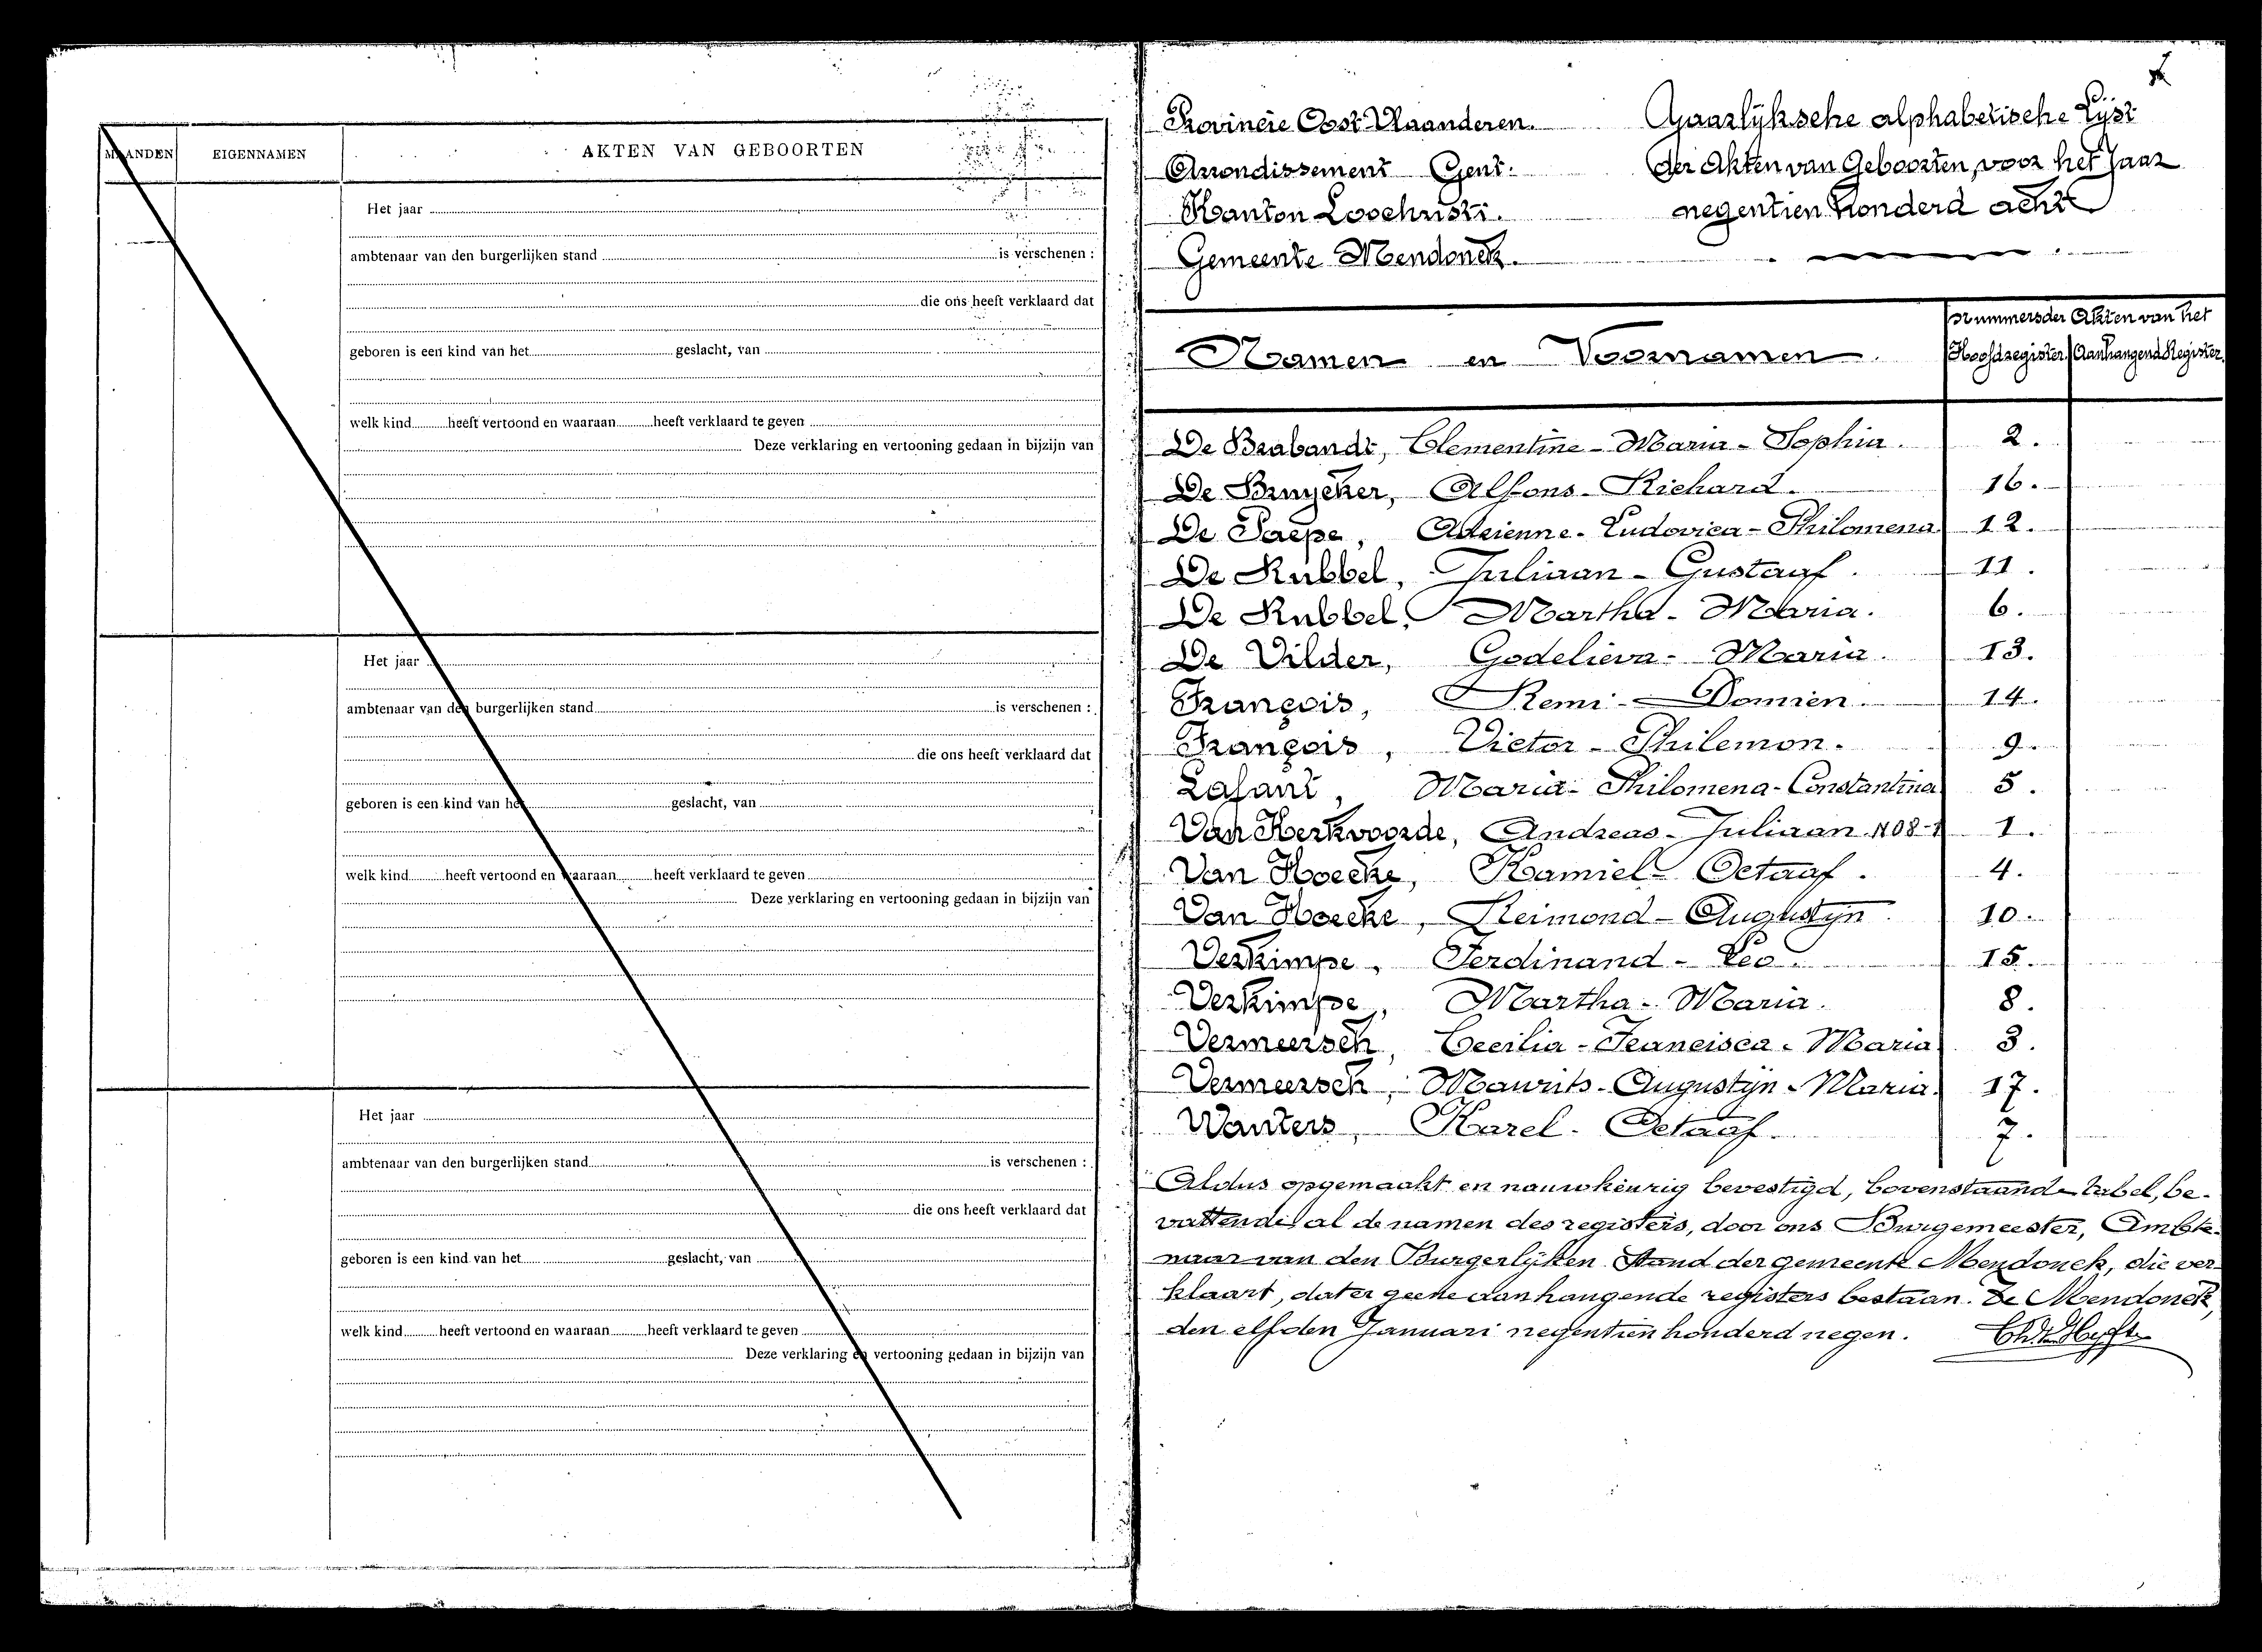 MAANDEN EIGENNAMEN AKTEN VAN GEBOORTEN
Het jaar
ambtenaar van den burgerlijken stand is verschenen :
die ons heeft verklaard dat
geboren is een kind van het geslacht, van
welk kind heeft vertoond en waaraan heeft verklaard te geven
Deze verklaring en vertooning gedaan in bijzijn van
Het jaar
ambtenaar van den burgerlijken stand is verschenen :
die ons heeft verklaard dat
geboren is een kind van het geslacht, van
welk kind heeft vertoond en waaraan heeft verklaard te geven
Deze verklaring en vertooning gedaan in bijzijn van
Het jaar
ambtenaar van den burgerlijken stand is verschenen :
die ons heeft verklaard dat
geboren is een kind van het geslacht, van
welk kind heeft vertoond en waaraan heeft verklaard te geven
Deze verklaring en vertooning gedaan in bijzijn van
Provincie Oost Vlaanderen.
Arrondissement Gent.
Kanton Loochristi.
Gemeente Mendonck.
Jaarlijksche alphabetische Lijst
der Akten van Geboorten, voor het Jaar
negentien honderd acht
Namen en Voornamen
nummers der Akten van het
Hoofdregister Aanhangend Register.
De Brabandt, Clementine - Maria - Sophia. 2.
De Bruycker, Alfons - Richard. 16.
De Paepe, Adrienne - Ludovica - Philomena 12.
De Rubbel, Juliaan - Gustaaf. 11.
De Rubbel, Martha - Maria. 6.
De Vilder, Godelieva - Maria. 13.
François, Remi - Damien. 14.
François, Victor - Philemon. 9.
Lafant, Maria - Philomena - Constantina 5.
Van Kerkvoorde, Andreas - Juliaan 1.
Van Hoecke, Kamiel - Octaaf. 4.
Van Hoecke, Reimond - Augustijn. 10.
Verkimpe, Ferdinand - Leo. 15.
Verkimpe, Martha - Maria. 8.
Vermeersch, Cecilia - Francisca - Maria 3.
Vermeersch, Maurits - Augustijn - Maria. 17.
Wauters, Karel - Octaaf. 7.
Aldus opgemaakt en nauwkeurig bevestigd, bovenstaande tabel, be-
vattende al de namen des registers, door ons Burgemeester, Ambte-
naar van den Burgerlijken Stand der gemeente Mendonck, die ver-
klaart, dat er geene aanhangende registers bestaan. Te Mendonck,
den elfden Januari negentien honderd negen.